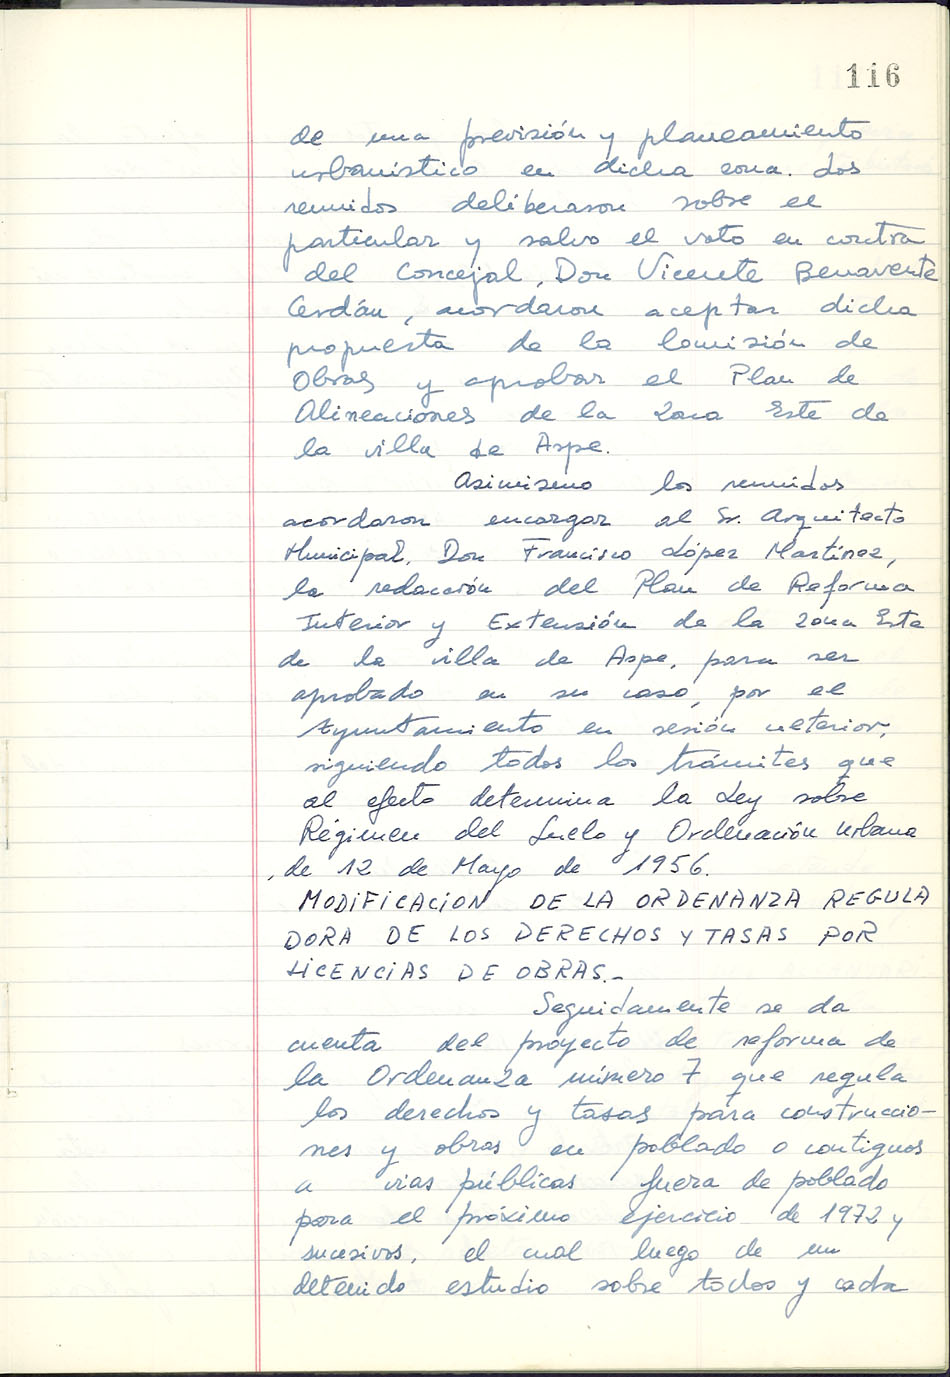 116
de una previsión y planeamiento
urbanístico en dicha zona. Los
reunidos deliberaron sobre el
particular y salvo el voto en contra
del Concejal, Don Vicente Benavente
Cerdán, acordaron aceptar dicha
propuesta de la Comisión de
Obras y aprobar el Plan de
Alineaciones de la Zona Este de
la villa de Aspe.
Asimismo los reunidos
acordaron encargar al Sr. Arquitecto
Municipal, Don Francisco López Martínez,
la redacción del Plan de Reforma
Interior y Extensión de la zona Este
de la villa de Aspe, para ser
aprobado en su caso, por el
Ayuntamiento en sesión ulterior,
siguiendo todos los trámites que
al efecto determina la Ley sobre
Régimen del Suelo y Ordenación Urbana
, de 12 de Mayo de 1956.
MODIFICACION DE LA ORDENANZA REGULA
DORA DE LOS DERECHOS Y TASAS POR
LICENCIAS DE OBRAS.-
Seguidamente se da
cuenta del proyecto de reforma de
la Ordenanza número 7 que regula
los derechos y tasas para construccio-
nes y obras en poblado o contiguos
a vias públicas fuera de poblado
para el próximo ejercicio de 1972 y
sucesivos, el cual luego de un
detenido estudio sobre todos y cada